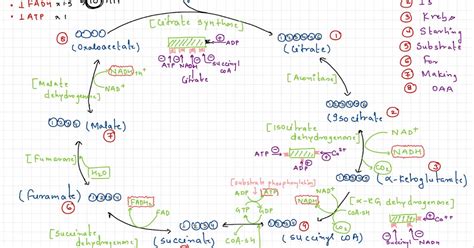 ↓FADH₂ × 1
↓ATP × 1
② Is
③ Krebs
④ Starting
⑤ Substrate
⑥ For
⑦ Making
⑧ OAA
[Citrate synthase]
⑧
(Oxaloacetate)
⊕ ADP
ATP NADH succinyl CoA
Citrate
①
(Citrate)
[Malate dehydrogenase]
NADH+H⁺
NAD⁺
[Aconitase]
(Isocitrate) ②
(Malate)
⑦
[Isocitrate dehydrogenase]
ATP
⊕ Ca²⁺
NAD⁺
NADH
CO₂
[Fumarase]
H₂O
③
(α-Ketoglutarate)
(Fumarate)
⑥
FADH₂
FAD
[Succinate dehydrogenase]
(succinate)
[substrate phosphorylation]
ATP
GTP
ADP
GDP
COA-SH
④
(succinyl COA)
[α-KG dehydrogenase]
NADH
CO₂
COA-SH
NAD⁺
⊕ Ca²⁺